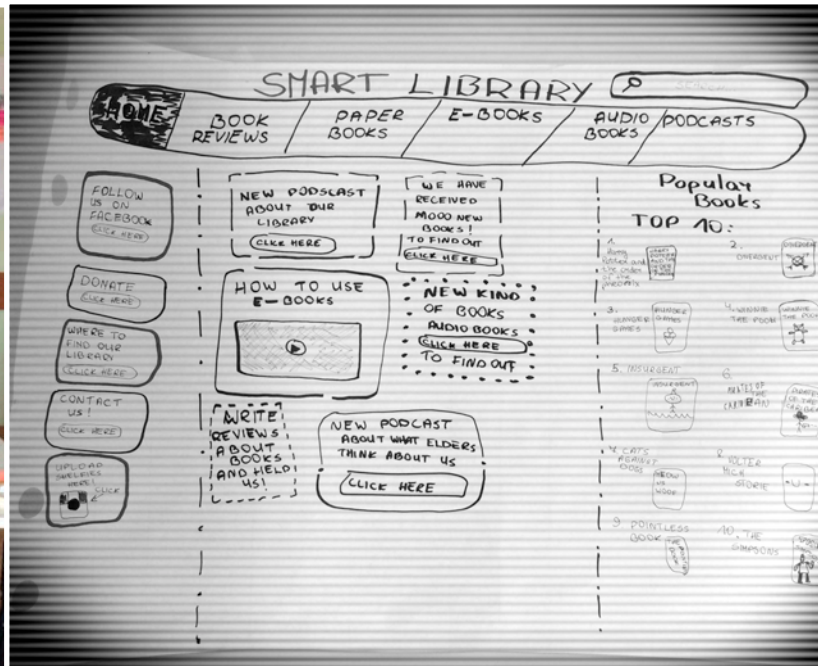 SMART LIBRARY
SEARCH
HOME
BOOK
REVIEWS
PAPER
BOOKS
E-BOOKS
AUDIO
BOOKS
PODCASTS
FOLLOW
US ON
FACEBOOK
CLICK HERE
DONATE
CLICK HERE
WHERE TO
FIND OUR
LIBRARY
CLICK HERE
CONTACT
US!
CLICK HERE
UPLOAD
SHELFIES
HERE!
CLICK
NEW PODSCAST
ABOUT OUR
LIBRARY
CLICK HERE
WE HAVE
RECEIVED
1000 NEW
BOOKS!
TO FIND OUT
CLICK HERE
HOW TO USE
E-BOOKS
NEW KIND
OF BOOKS
AUDIO BOOKS
CLICK HERE
TO FIND OUT
WRITE
REVIEWS
ABOUT
BOOKS
AND HELP
US!
NEW PODCAST
ABOUT WHAT ELDERS
THINK ABOUT US
CLICK HERE
Popular
Books
TOP 10:
1.
Harry
Potter and
the order
of the
phoenix
2.
DIVERGENT
DIVERGENT
3.
HUNGER
GAMES
HUNGER
GAMES
4. WINNIE
THE POOH
WINNIE
THE POOH
5. INSURGENT
INSURGENT
6.
PIRATES OF
THE
CARIBBEAN
PIRATES
OF THE
7. CATS
AGAINST
DOGS
MEOW
VS
WOOF
8.
9. POINTLESS
BOOK
10. THE
SIMPSONS